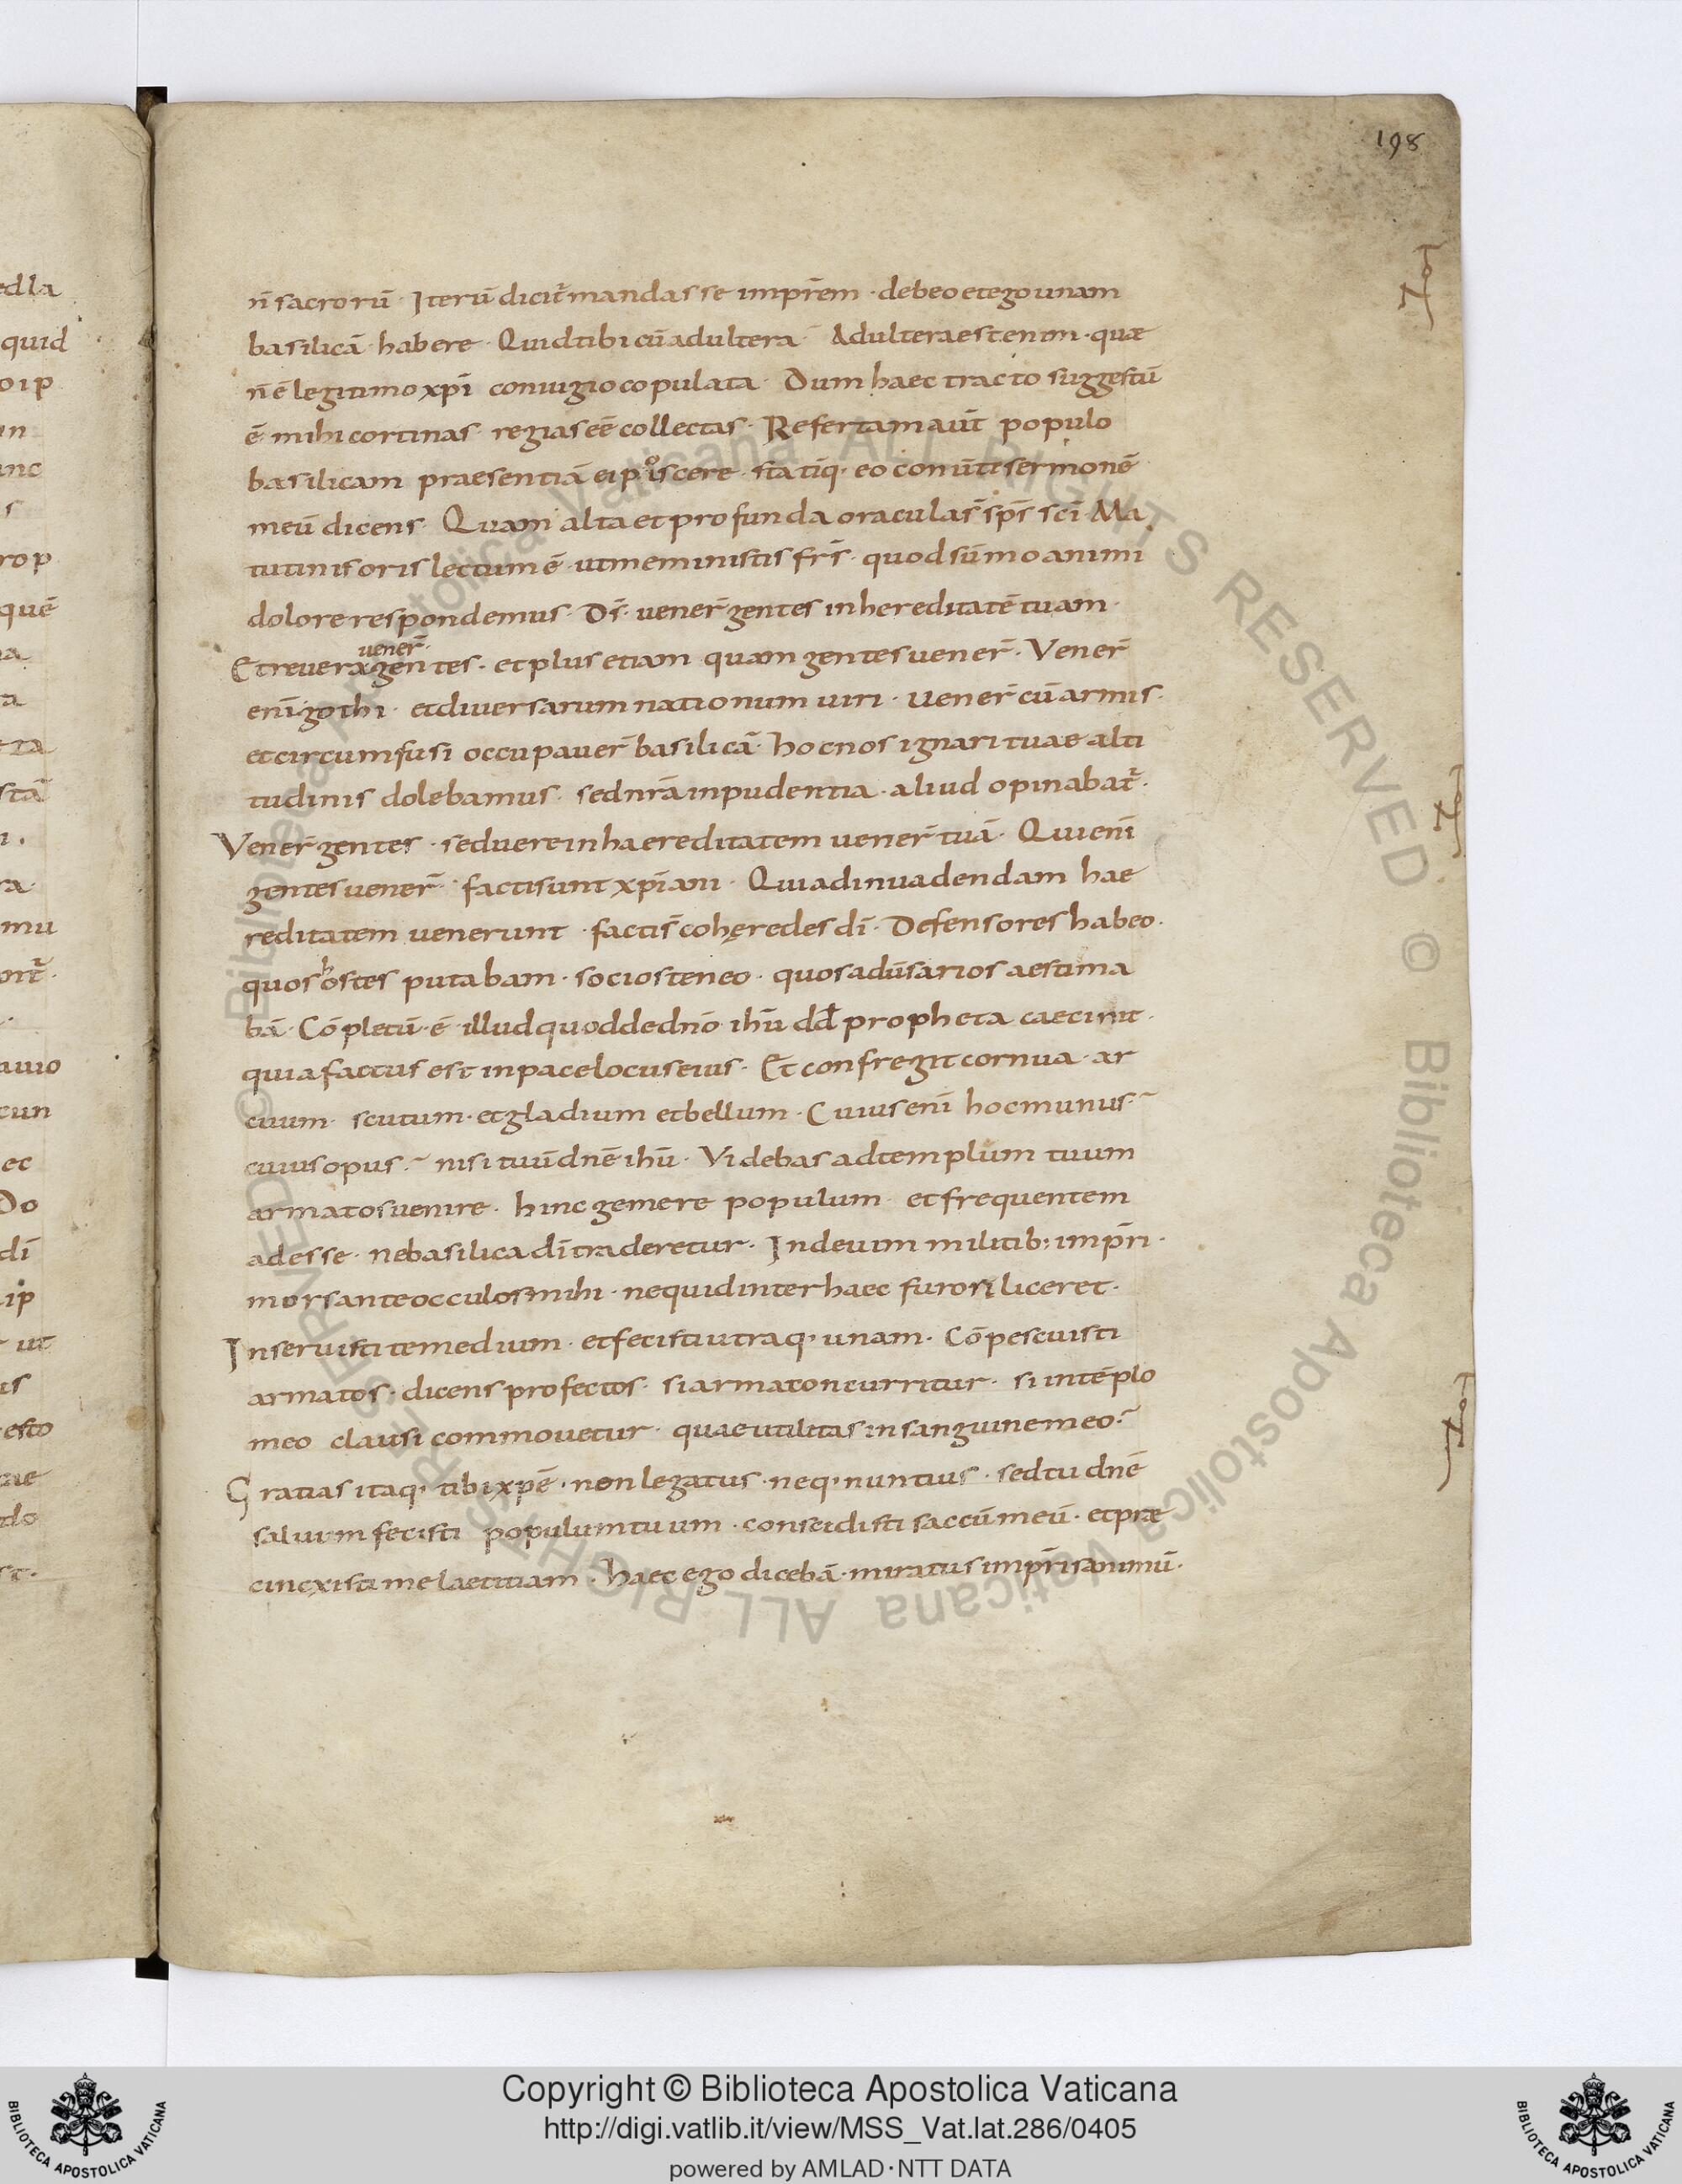 198
n̄ sacrorū · Iterū dicit̄ mandasse imp̄rem · debeo et ego unam
basilicā habere · Quid tibi cū adultera · Adultera est enim · quae
n̄ ē legitimo xp̄i coniugio copulata · Dum haec tracto suggestū
ē mihi cortinas regias eē collectas · Refertam aūt populo
basilicam praesentiā ei poscere · statiq; eo conūti sermonē
meū dicens · Quam alta et profunda oracula s̄ sp̄s sc̄i Ma
tutinis oris lectum ē · ut meministis fr̄s · quod sūmo animi
dolore respondemus · Ds̄ · vener̄ gentes in hereditatē tuam ·
Et revera vener̄ · gentes · et plus etiam quam gentes vener̄ · Vener̄
enī gothi · et diversarum nationum viri · vener̄ cū armis ·
et circumfusi occupaver̄ basilicā · hoc nos ignari tuae alti
tudinis dolebamus · sed nr̄a inpudentia · aliud opinabat̄ ·
Vener̄ gentes · sed vere in haereditatem vener̄ tuā · Qui enī
gentes vener̄ · facti sunt xp̄iani · Qui ad invadendam hae
reditatem venerunt · facti s̄ cohęredes dī · Defensores habeo ·
quos hostes putabam · socios teneo · quos adūsarios aestima
bā · Cōpletū · ē illud quod de dn̄o ihū dd̄ propheta caecinit ·
quia factus est in pace locus eius · Et confregit cornua · ar
cuum · scutum · et gladium et bellum · Cuius enī hoc munus ·
cuius opus · nisi tuū dn̄e ihū · Videbas ad templum tuum
armatos venire · hinc gemere populum et frequentem
adesse · ne basilica dī traderetur · Inde vim militib; imp̄ri ·
mors ante occulos mihi · ne quid inter haec furori liceret ·
Inseruisti te medium · et fecisti utraq; unam · Cōpescuisti
armatos · dicens profectos · si armat concurritur · si in tēplo
meo clausi commovetur · quae utilitas in sanguine meo ·
Gratias itaq; tibi xp̄e · non legatus · neq; nuntius · sed tu dn̄e
salvum fecisti populum tuum · conscidisti saccū meū · et prae
cincxisti me laetitiam · haec ego dicebā · miratus imp̄ris animū ·
Copyright © Biblioteca Apostolica Vaticana
http://digi.vatlib.it/view/MSS_Vat.lat.286/0405
powered by AMLAD·NTT DATA